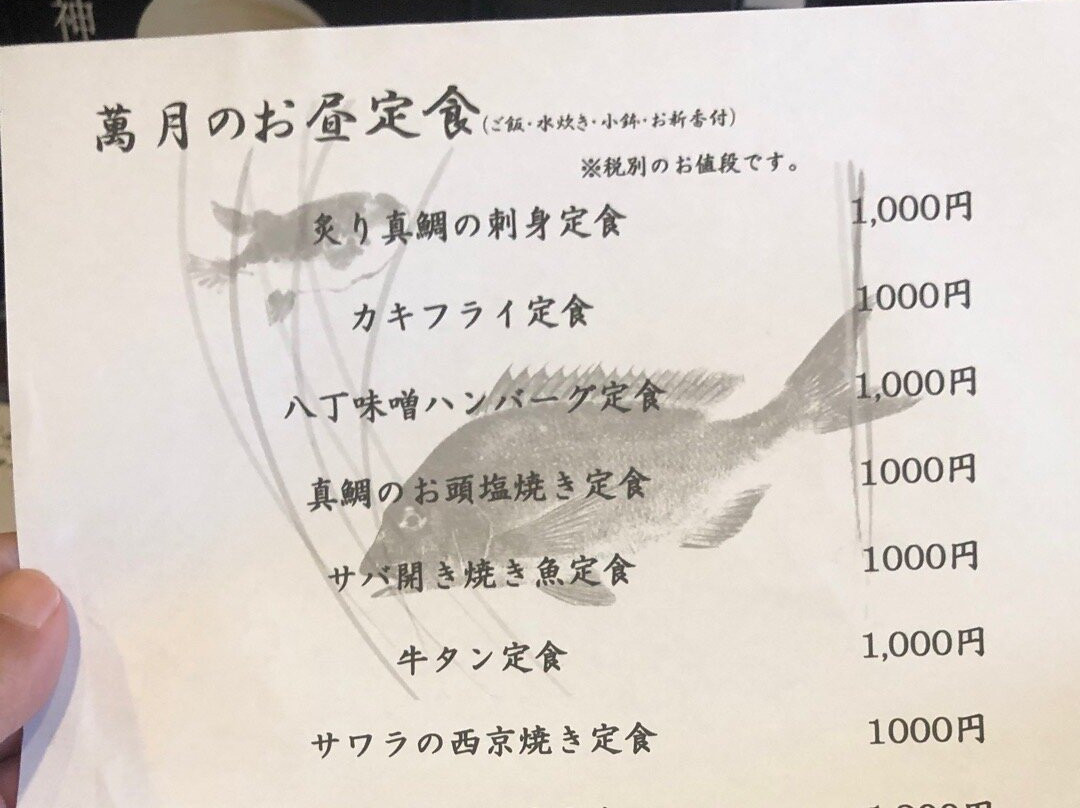 神
萬月のお昼定食(ご飯・水炊き・小鉢・お新香付)
※税別のお値段です。
炙り真鯛の刺身定食 1,000円
カキフライ定食 1000円
八丁味噌ハンバーグ定食 1,000円
真鯛のお頭塩焼き定食 1000円
サバ開き焼き魚定食 1000円
牛タン定食 1,000円
サワラの西京焼き定食 1000円